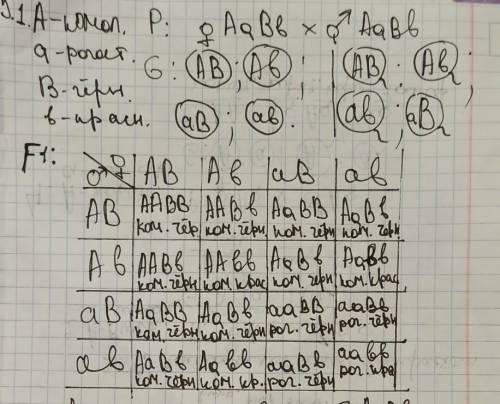 5.1. А-комол. P: ♀ АаВв × ♂ АаВв
а-рогат. G: АВ ; Ав ; | АВ . Ав ;
В-чёрн. аВ ; ав . | ав ; аВ .
в-красн.
F1:
♂ ♀ | АВ | Ав | аВ | ав
АВ | ААВВ ком. чёр. | ААВв ком. чёрн | АаВВ ком. чёрн | АаВв ком. чёрн
Ав | ААВв ком. чёрн | ААвв ком. крас | АаВв ком. чёрн | Аавв ком. крас
аВ | АаВВ ком. чёрн | АаВв ком. чёрн | ааВВ рог. чёрн | ааВв рог. чёрн
ав | АаВв ком. чёрн | Аавв ком. кр. | ааВв рог. чёрн | аавв рог. кра